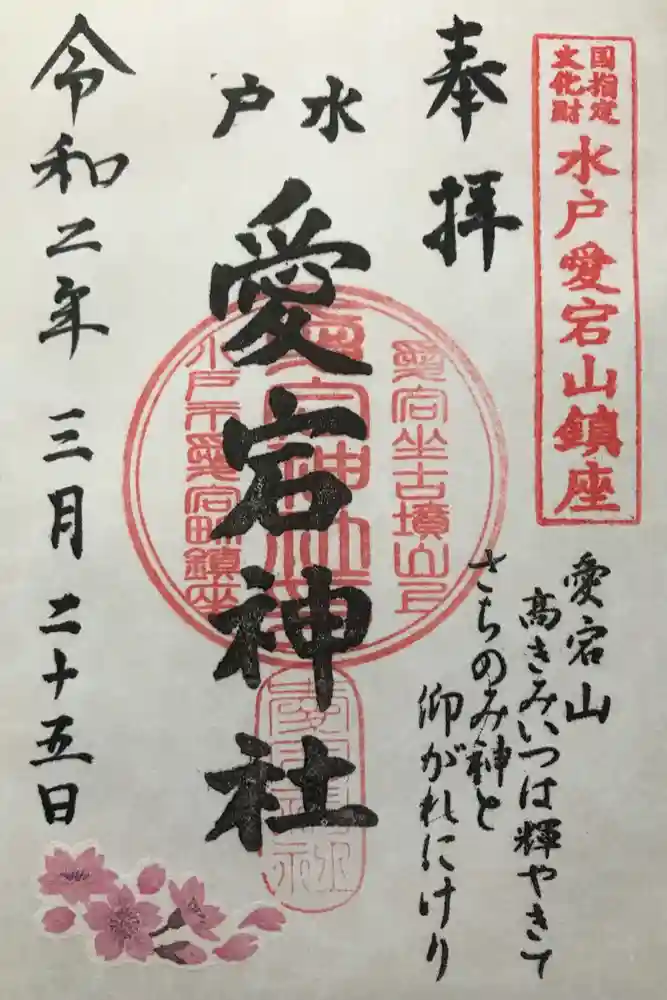 国指定
文化財
水戸愛宕山鎮座
奉拝
愛宕山
高きみいつは輝やきて
さちのみ神と
仰がれにけり
水戸
愛宕神社
愛宕坐古墳山上
愛宕神社
水戸市愛宕町鎮座
令和二年三月二十五日